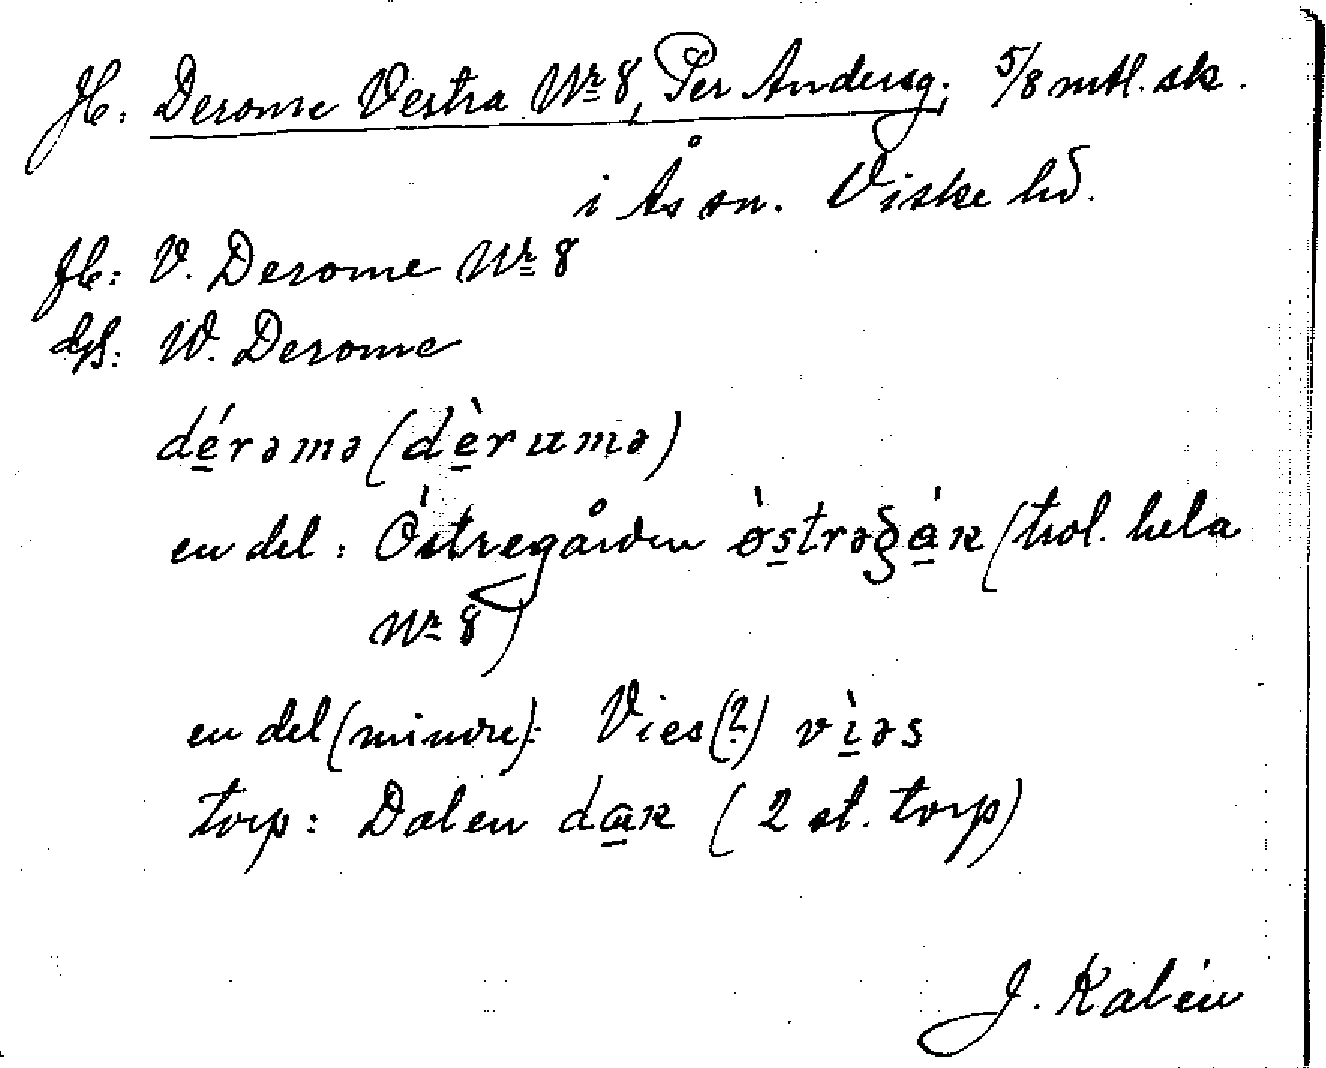 Jb: Derome Vestra Nr 8, Per Andersg. 5/8 mtl. sk.
i Ås sn. Viske hd.
Jb: V. Derome Nr 8
GS: W. Derome
dérəmə (dèrumə)
en del: Östregården östrəgán (trol. hela
Nr 8)
en del (mindre): Vies(?) vìəs
torp: Dalen dan (2 st. torp)
J. Kalén